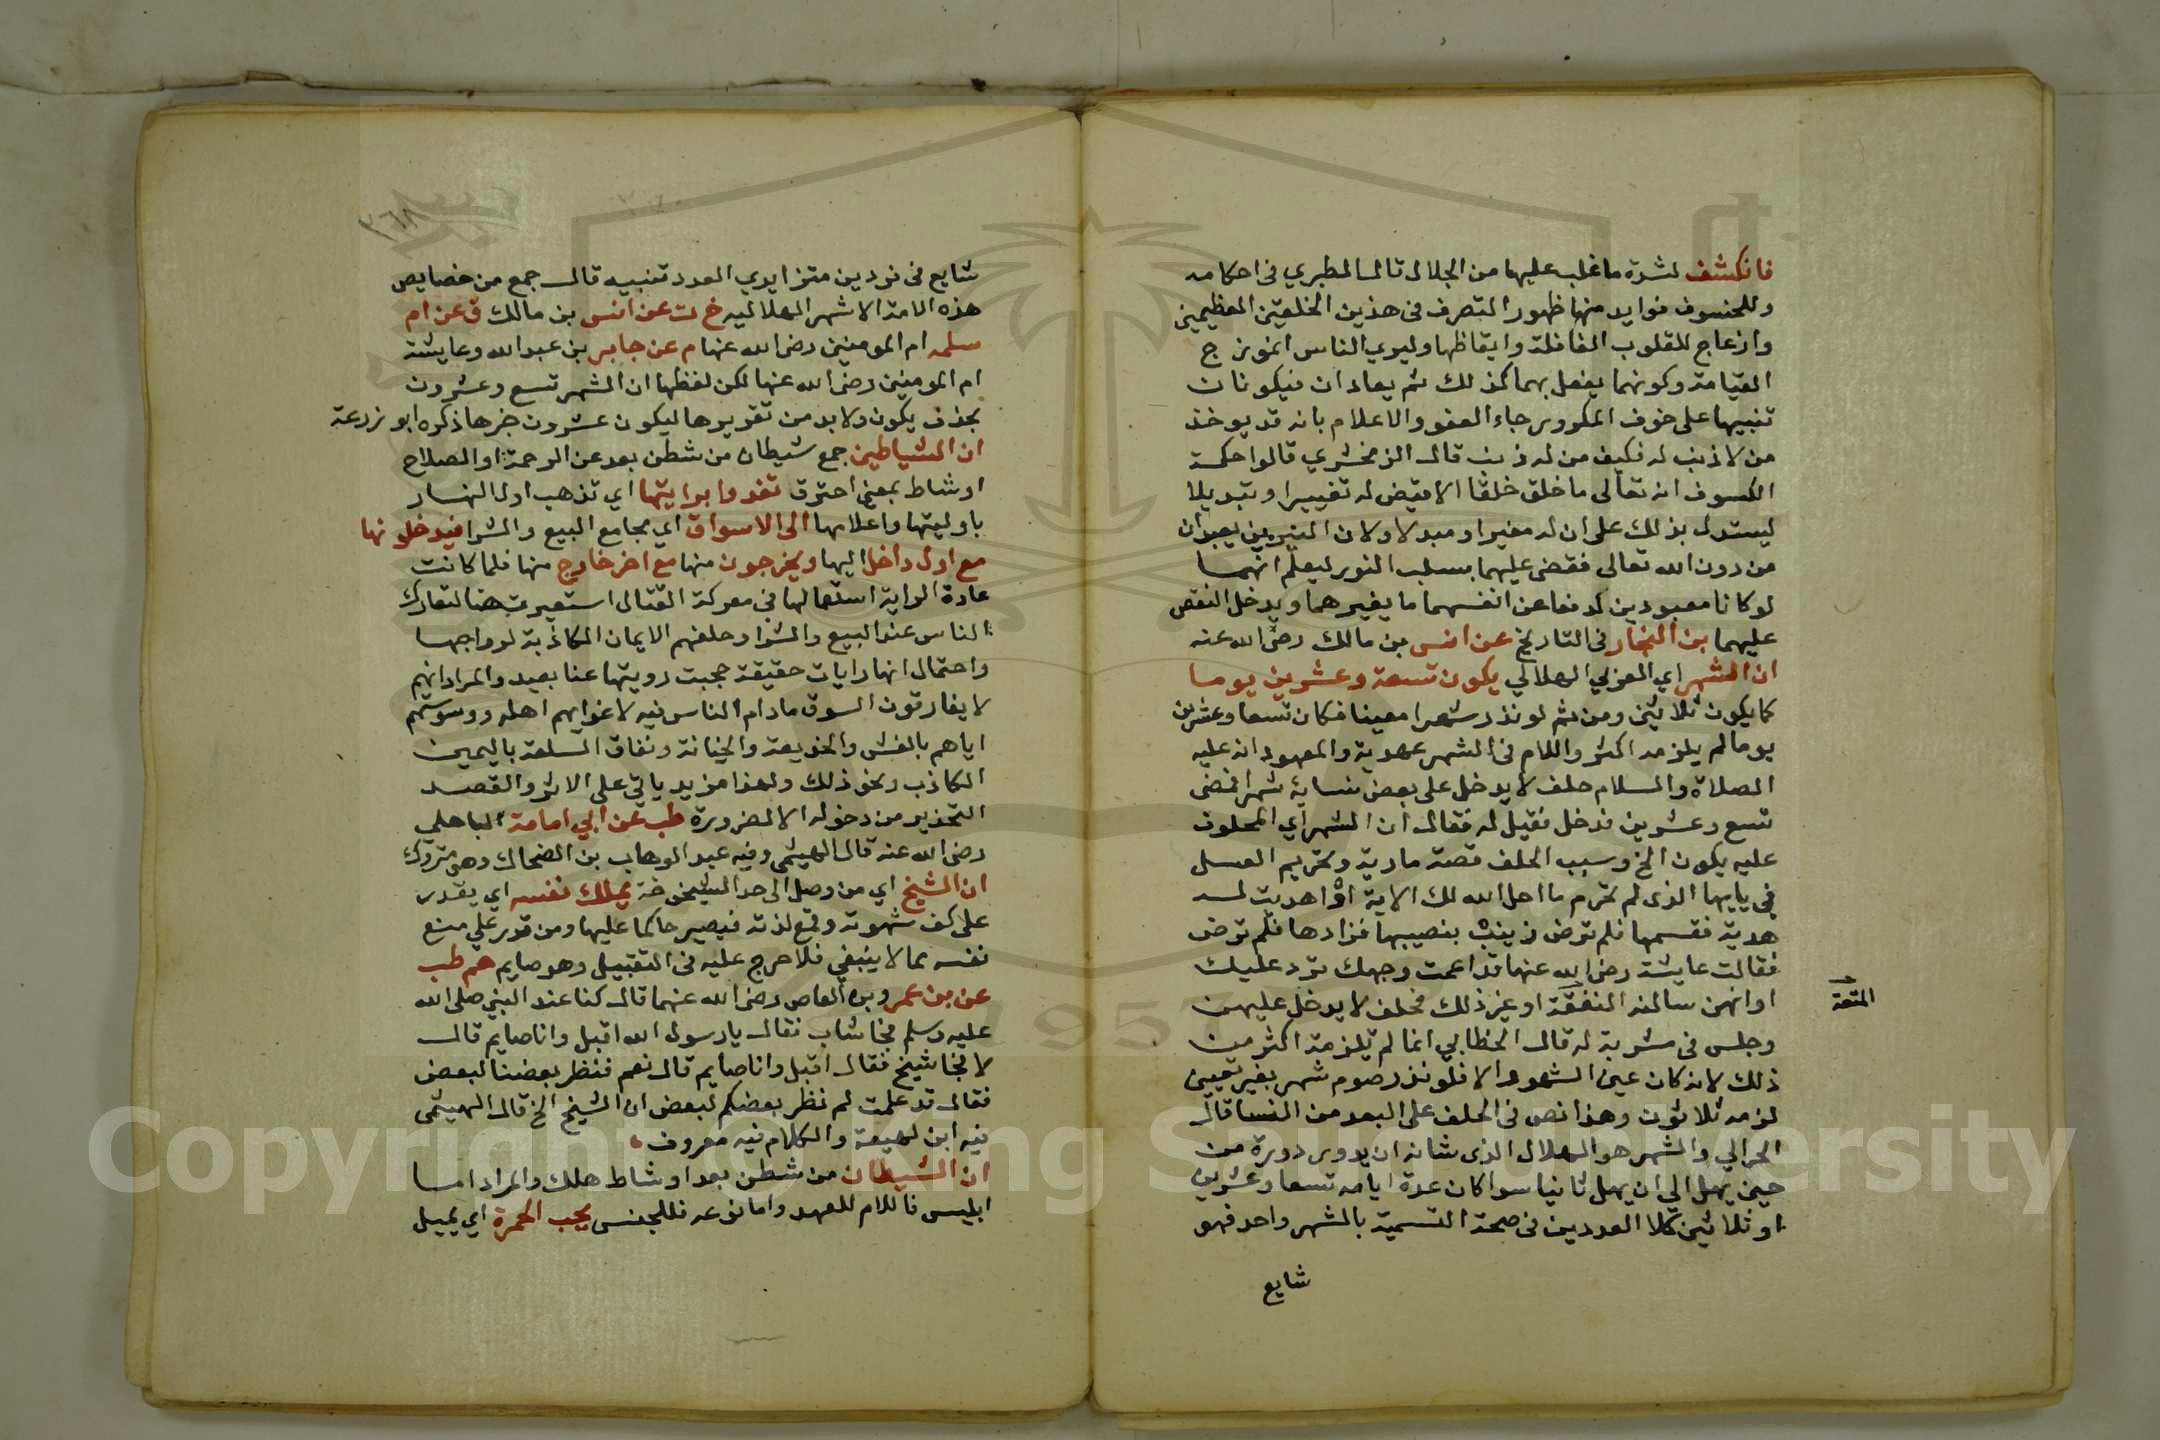 فانكشف لشدة ما غلب عليها من الجلال قال المطبري في احكامه
وللخسوف فوايد منها ظهور التصرف في هذين الخلقين العظيمين
وازعاج القلوب الغافلة وايقاظها وليري الناس انموذج
القيامة وكونهما يفعل بهما كذلك ثم يعادان فيكونان
تنبيها على خوف المكر ورجاء العفو والاعلام بانه قد يوخذ
من لا ذنب له فكيف من له ذنب قال الزمخشري قالوا حكمة
الكسوف انه تعالى ما خلق خلقا الا قيض له تغييرا وتبديلا
ليستدل بذلك على ان له مغيرا ومبدلا ولان النيرين يعبدان
من دون الله تعالى فقضى عليهما بسلب النور ليعلم انهما
لو كانا معبودين لدفعا عن انفسهما ما يغيرهما ويدخل النقص
عليهما بن النجار في التاريخ عن انس بن مالك رضى الله عنه
ان الشهر اي العربي الهلالي يكون تسعة وعشرين يوما
كما يكون ثلاثين ومن ثم لو نذر شهرا معينا فكان تسعا وعشرين
يوما لم يلزمه اكثر واللام في الشهر عهدية والمعهود انه عليه
الصلاة والسلام حلف لا يدخل على بعض نسايه شهرا فمضى
تسع وعشرين فدخل فقيل له فقال ان الشهر اي المحلوف
عليه يكون الخ وسبب الحلف قصة مارية وتحريم العسل
في يايها الذى لم تحرم ما احل الله لك الاية او اهديت له
هدية فقسمها فلم ترض زينب بنصيبها فزادها فلم ترض
فقالت عايشة رضى الله عنها قد اعمت وجهك ترد عليك
او انهن سالنه النفقة او غير ذلك فحلف لا يدخل عليهن
المتعة
وجلس في مشربة له قال الخطابي انما لم يلزمه اكثر من
ذلك لانه كان عين الشهر والا فلو نذر صوم شهر بغير تعيين
لزمه ثلاثون وهذا نص في الحلف على البعد من النسا قال
الحرالي والشهر هو الهلال الذى شانه ان يدور دورة من
حين يهل الي ان يهل ثانيا سوا كان عدة ايامه تسعا وعشرين
او ثلاثين كلا العددين في صحة التسمية بالشهر واحد فهو
شايع
٣٦٨
شايع في فردين متزايدي العدد تنبيه قال جمع من خصايص
هذه الامة الاشهر الهلاليه خ ت عن انس بن مالك ق عن ام
سلمه ام المومنين رضى الله عنها م عن جابر بن عبد الله وعايشة
ام المومنين رضى الله عنها لكن لفظها ان الشهر تسع وعشرون
بحذف يكون ولا بد من تقديرها ليكون عشرون خبرها ذكره ابو زرعة
ان الشياطين جمع شيطان من شطن بعد عن الرحمة او الصلاح
او شاط بمعنى احترق تغدوا براياتها اي تذهب اول النهار
باوليتها واعلامها الى الاسواق اي مجامع البيع والشرا فيدخلونها
مع اول داخل اليها ويخرجون منها مع اخر خارج منها فلما كانت
عادة الراية استعمالها في معركة القتال استعيرت هنا لتعارك
الناس عند البيع والشرا وحلفهم الايمان الكاذبة لرواجها
واحتمال انها رايات حقيقة حجبت رويتها عنا بعيد والمراد انهم
لا يفارقون السوق ما دام الناس فيه لاغوايهم اهله ووسوستهم
اياهم بالغش والخديعة والخيانة ونفاق السلعة باليمين
الكاذب ونحو ذلك ولهذا مزيد ياتي على الاثر والقصد
التحذير من دخوله الا لضرورة طب عن ابي امامة الباهلي
رضى الله عنه قال الهيثمى وفيه عبد الوهاب بن الضحاك وهو متروك
ان الشيخ اي من وصل الى حد الشيخوخة يملك نفسه اي يقدر
على كف شهوته وقمع لذته فيصير حاكما عليها ومن قدر علي منع
نفسه مما لا ينبغي فلا حرج عليه في التقبيل وهو صايم حم طب
عن بن عمرو بن العاص رضى الله عنهما قال كنا عند النبي صلى الله
عليه وسلم فجا شاب فقال يا رسول الله اقبل وانا صايم قال
لا فجا شيخ فقال اقبل وانا صايم قال نعم فنظر بعضنا لبعض
فقال قد علمت لم نظر بعضكم لبعض ان الشيخ الخ قال الهيثمى
فيه ابن لهيعة والكلام فيه معروف
ان الشيطان من شطن بعد او شاط هلك والمراد اما
ابليس فاللام للعهد واما نوعه فللجنس يحب الحمرة اي يميل
Copyright © King Saud University
1957